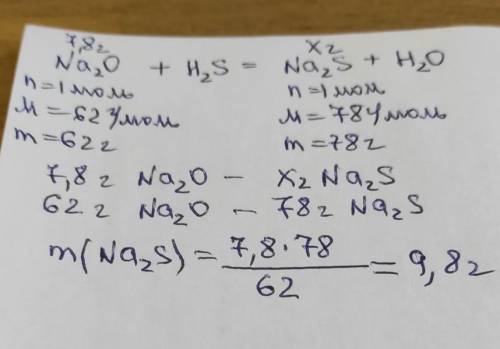 7,8г                    xг
Na₂O + H₂S = Na₂S + H₂O
n=1моль                n=1моль
M=62г/моль            M=78г/моль
m=62г                  m=78г
7,8г Na₂O – xг Na₂S
62г Na₂O – 78г Na₂S
m(Na₂S) = 7,8·78 / 62 = 9,8г